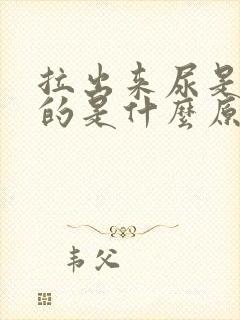 拉出来尿是
的是什麼原
韦父